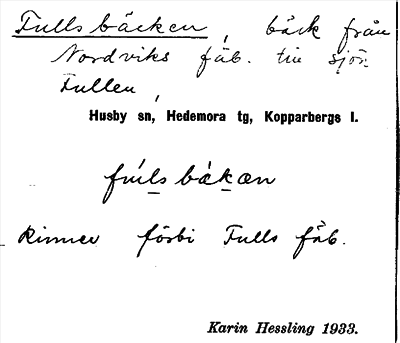 Fullsbäcken, bäck från
Nordviks fäb. till sjön
Fullen,
Husby sn, Hedemora tg, Kopparbergs l.
fúlsbäkæn
Rinner förbi Fulls fäb.
Karin Hessling 1933.